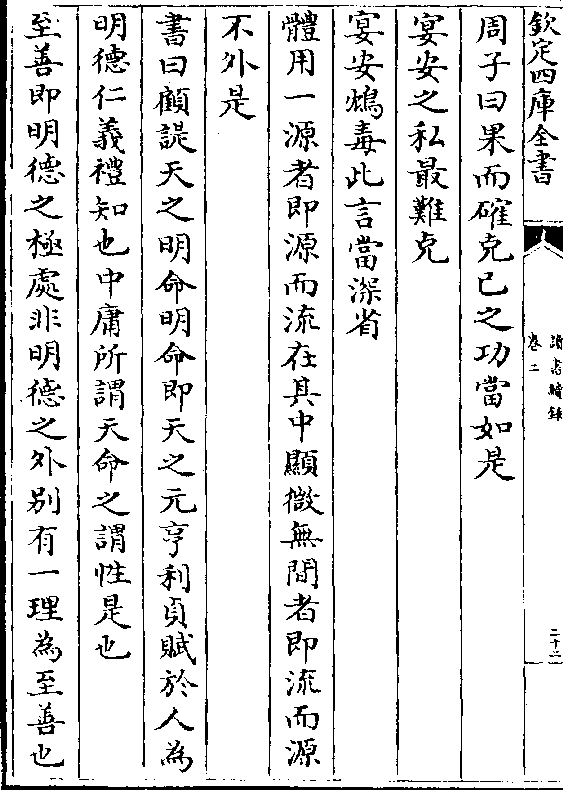 欽定四庫全書
讀書續錄
卷二
二十二
周子曰果而確克已之功當如是
宴安之私最難克
宴安鴆毒此言當深省
體用一源者即源而流在其中顯微無間者即流而源
不外是
書曰顧諟天之明命明命即天之元亨利貞賦於人為
明德仁義禮知也中庸所謂天命之謂性是也
至善即明德之極處非明德之外别有一理為至善也